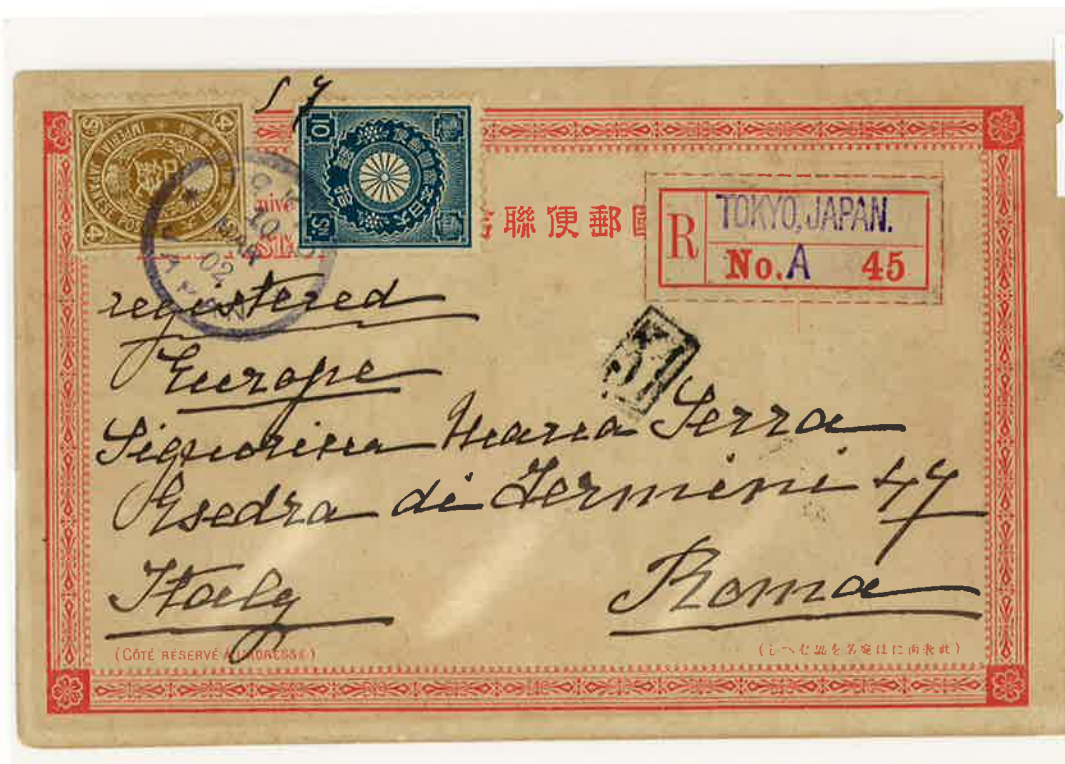 S 7
4 IMPERIAL JAPANESE POST 4
10 大日本帝國郵便 拾錢 Sn
TOKYO
10
MAR
02
JAPAN
國郵便聯
R TOKYO, JAPAN.
No. A 45
registered
Europe
51
Signorina Maria Serra
Esedra di Termini 47
Italy Roma
(CÔTÉ RÉSERVÉ À L'ADRESSE)
(此表面には宛名を認むへし)